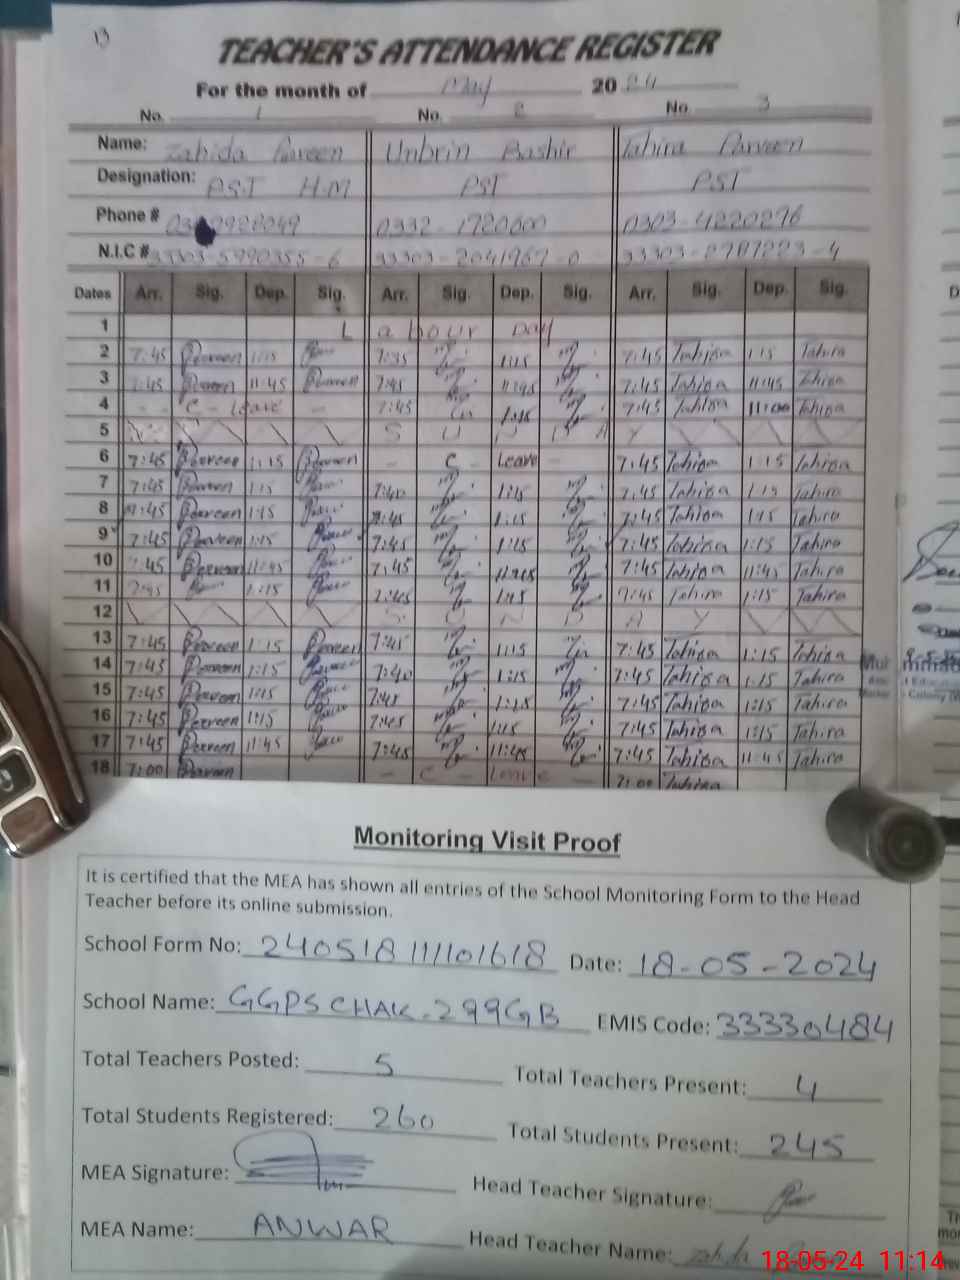 13
TEACHER'S ATTENDANCE REGISTER
For the month of May 2024
No. 1 No. 2 No. 3
Name: Zahida Parveen Unbrin Bashir Tahira Parveen
Designation: P.S.T H.M PST PST
Phone # 0332-1720600 0303-4220276
N.I.C # 33303-5990355-6 33303-2041967-0 33303-2787223-4
Dates Arr. Sig. Dep. Sig. Arr. Sig. Dep. Sig. Arr. Sig. Dep. Sig.
1 L a b o u r Day
2 7:45 Parveen 1:15 7:35 1:15 7:45 Tahira 1:15 Tahira
3 7:45 Parveen 11:45 Parveen 7:45 11:45 7:45 Tahira 11:45 Tahira
4 - - C - Leave - 7:45 1:15 7:45 Tahira 11:00 Tahira
5 S U N D A Y
6 7:45 Parveen 1:15 Parveen - C - Leave - 7:45 Tahira 1:15 Tahira
7 7:45 Parveen 1:15 7:40 1:15 7:45 Tahira 1:15 Tahira
8 7:45 Parveen 1:15 7:45 1:15 7:45 Tahira 1:15 Tahira
9 7:45 Parveen 1:15 7:45 1:15 7:45 Tahira 1:15 Tahira
10 7:45 Parveen 11:45 7:45 11:45 7:45 Tahira 11:45 Tahira
11 7:45 1:15 7:45 1:15 7:45 Tahira 1:15 Tahira
12 S U N D A Y
13 7:45 Parveen 1:15 Parveen 7:45 1:15 7:45 Tahira 1:15 Tahira
14 7:45 Parveen 1:15 7:40 1:15 7:45 Tahira 1:15 Tahira
15 7:45 Parveen 1:15 7:45 1:15 7:45 Tahira 1:15 Tahira
16 7:45 Parveen 1:15 7:45 1:15 7:45 Tahira 1:15 Tahira
17 7:45 Parveen 11:45 7:45 11:45 7:45 Tahira 11:45 Tahira
18 7:00 Parveen - C - Leave - 7:00 Tahira
Monitoring Visit Proof
It is certified that the MEA has shown all entries of the School Monitoring Form to the Head
Teacher before its online submission.
School Form No: 240518111101618 Date: 18-05-2024
School Name: GGPS CHAK.299GB EMIS Code: 33330484
Total Teachers Posted: 5 Total Teachers Present: 4
Total Students Registered: 260 Total Students Present: 245
MEA Signature: Head Teacher Signature:
MEA Name: ANWAR Head Teacher Name: Zahida
18-05-24 11:14